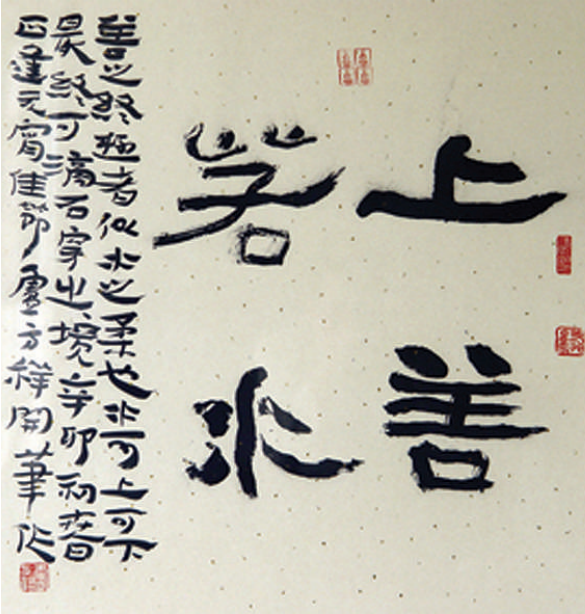 上善
若水
善之終極者似水之柔也水可上可下
最終可滴石穿之境辛卯初春日
正逢元宵佳節盧方祥開筆作